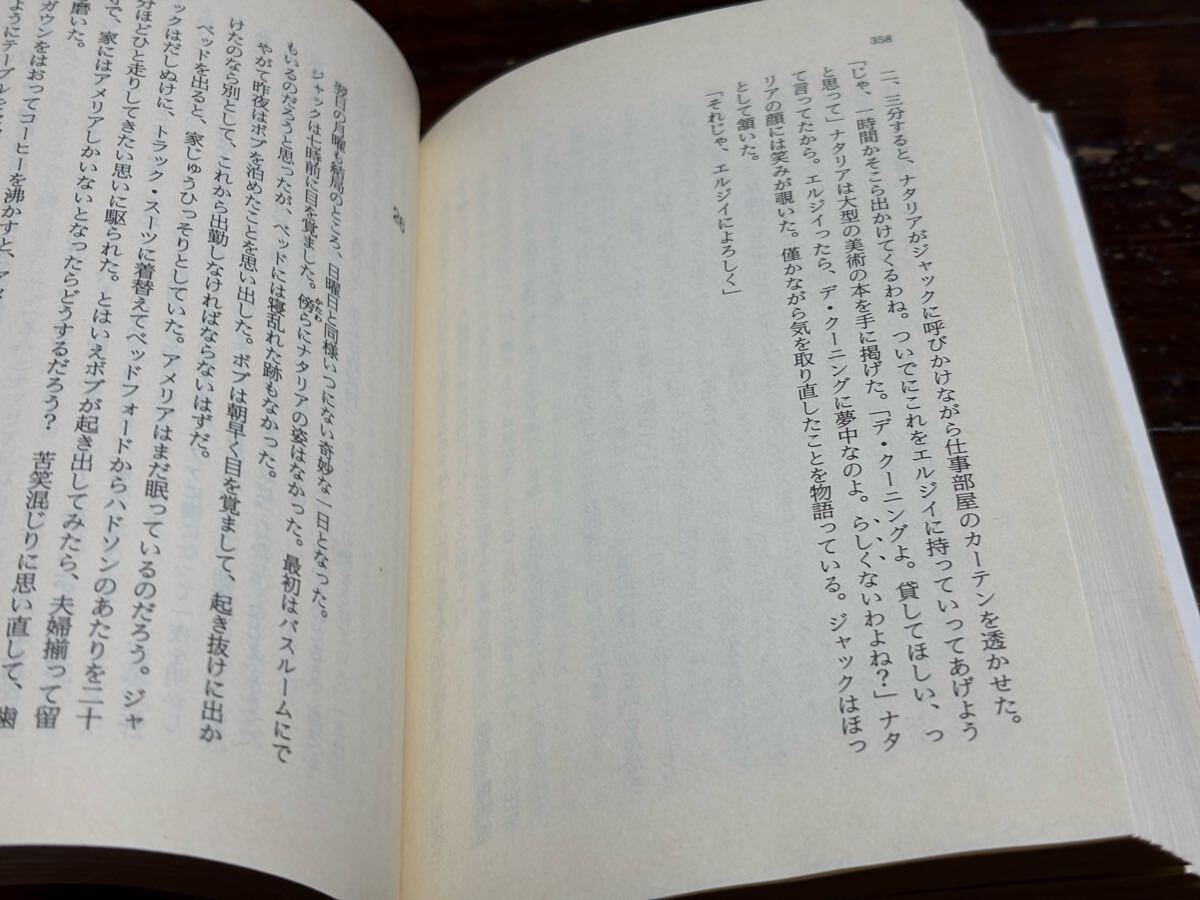 358
二、三分すると、ナタリアがジャックに呼びかけながら仕事部屋のカーテンを透かせた。
「じゃ、一時間かそこら出かけてくるわね。ついでにこれをエルジイに持っていってあげよう
と思って」ナタリアは大型の美術の本を手に掲げた。「デ・クーニングよ。貸してほしい、っ
て言ってたから。エルジイったら、デ・クーニングに夢中なのよ。らしくないわよね？」ナタ
リアの顔には笑みが覗いた。僅かながら気を取り直したことを物語っている。ジャックはほっ
として頷いた。
「それじゃ、エルジイによろしく」
26
翌日の月曜も結局のところ、日曜日と同様いつにない奇妙な一日となった。
ジャックは七時前に目を覚ました。傍らにナタリアの姿はなかった。最初はバスルームにで
かたわ
もいるのだろうと思ったが、ベッドには寝乱れた跡もなかった。
やがて昨夜はボブを泊めたことを思い出した。ボブは朝早く目を覚まして、起き抜けに出か
けたのなら別として、これから出勤しなければならないはずだ。
ベッドを出ると、家じゅうひっそりとしていた。アメリアはまだ眠っているのだろう。ジャ
ックはだしぬけに、トラック・スーツに着替えてベッドフォードからハドソンのあたりを二十
分ほどひと走りしてきたい思いに駆られた。とはいえボブが起き出してみたら、夫婦揃って留
で、家にはアメリアしかいないとなったらどうするだろう？　苦笑混じりに思い直して、歯
磨いた。
ガウンをはおってコーヒーを沸かすと、
ようにテーブルを